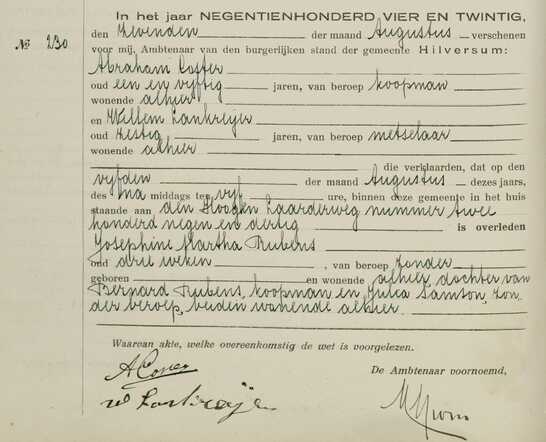 In het jaar NEGENTIENHONDERD VIER EN TWINTIG,
№ 230
den Zevenden der maand Augustus verschenen
voor mij, Ambtenaar van den burgerlijken stand der gemeente Hilversum:
Abraham Coster
oud een en vijftig jaren, van beroep koopman
wonende alhier
en Willem Lankreijer
oud zestig jaren, van beroep metselaar
wonende alhier
die verklaarden, dat op den
vijfden der maand Augustus dezes jaars,
des na middags te vijf ure, binnen deze gemeente in het huis
staande aan den Hoogen Laarderweg nummer twee
honderd negen en dertig is overleden
Josephine Martha Rubens
oud drie weken, van beroep zonder
geboren en wonende alhier, dochter van
Bernard Rubens, koopman en Julia Samson, zon-
der beroep, beiden wonende alhier.
Waarvan akte, welke overeenkomstig de wet is voorgelezen.
De Ambtenaar voornoemd,
A Coster
W Lankreijer